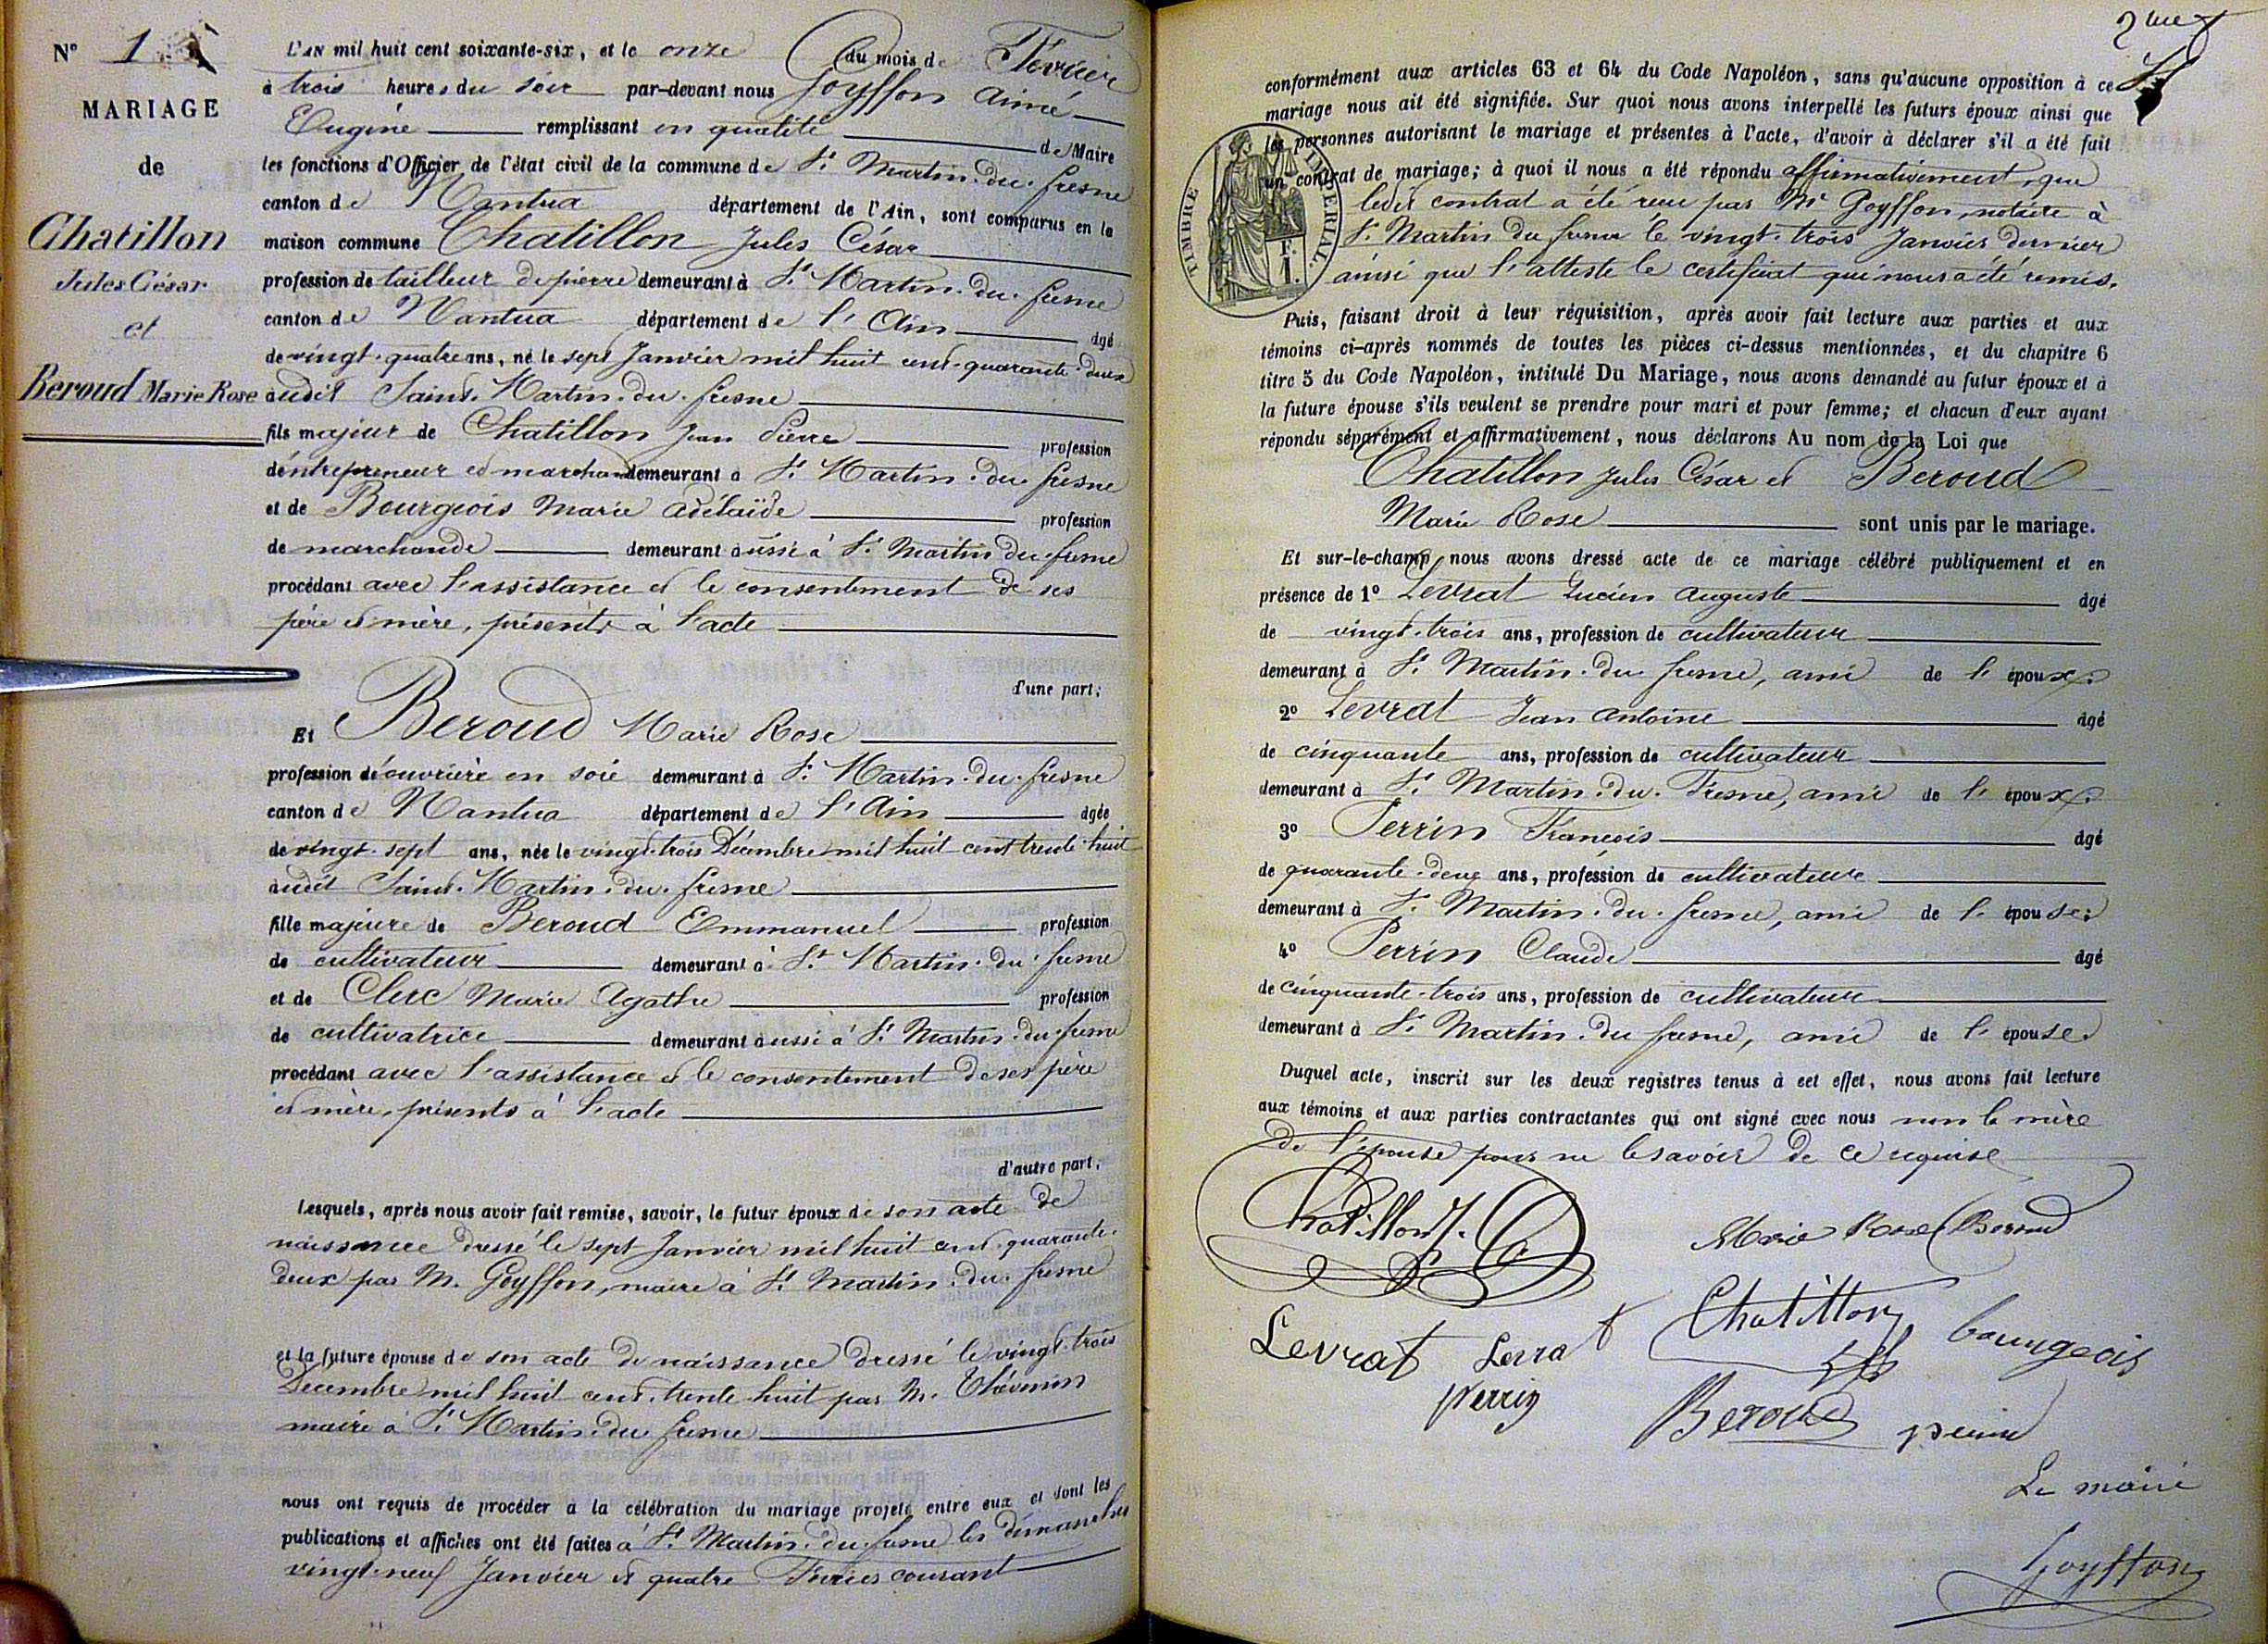 N° 1
MARIAGE
de
Chatillon
Jules César
et
Beroud Marie Rose
L'AN mil huit cent soixante-six, et le onze du mois de Février
à trois heures du soir par-devant nous Goyffon Aimé
Eugène remplissant en qualité de Maire
les fonctions d'Officier de l'état civil de la commune de St Martin-du-fresne
canton de Nantua département de l'Ain, sont comparus en la
maison commune Chatillon Jules César
profession de tailleur de pierre demeurant à St Martin-du-fresne
canton de Nantua département de l'Ain âgé
de vingt-quatre ans, né le sept Janvier mil huit cent-quarante-deux
audit Saint-Martin-du-fresne
fils majeur de Chatillon Jean Pierre profession
d'entrepreneur et marchand demeurant à St Martin-du-fresne
et de Bourgeois Marie Adélaïde profession
de marchande demeurant aussi à St Martin du fresne
procédant avec l'assistance et le consentement de ses
père et mère, présents à l'acte
d'une part;
Et Beroud Marie Rose
profession d'ouvrière en soie demeurant à St Martin-du-fresne
canton de Nantua département de l'Ain âgée
de vingt-sept ans, née le vingt-trois Décembre mil huit cent trente-huit
audit Saint-Martin-du-fresne
fille majeure de Beroud Emmanuel profession
de cultivateur demeurant à St Martin-du-fresne
et de Clerc Marie Agathe profession
de cultivatrice demeurant aussi à St Martin-du-fresne
procédant avec l'assistance et le consentement de ses père
et mère, présents à l'acte
d'autre part,
Lesquels, après nous avoir fait remise, savoir, le futur époux de son acte de
naissance dressé le sept Janvier mil huit cent-quarante-
deux par M. Goyffon, maire à St Martin-du-fresne
et la future épouse de son acte de naissance dressé le vingt-trois
Décembre mil huit cent-trente-huit par M. Thévenin
maire à St Martin-du-fresne
nous ont requis de procéder à la célébration du mariage projeté entre eux et dont les
publications et affiches ont été faites à St Martin-du-fresne les dimanches
vingt-neuf Janvier et quatre Février courant
2me
conformément aux articles 63 et 64 du Code Napoléon, sans qu'aucune opposition à ce
mariage nous ait été signifiée. Sur quoi nous avons interpellé les futurs époux ainsi que
les personnes autorisant le mariage et présentes à l'acte, d'avoir à déclarer s'il a été fait
un contrat de mariage; à quoi il nous a été répondu affirmativement, que
ledit contrat a été reçu par Me Goyffon, notaire à
St Martin du fresne le vingt-trois Janvier dernier
ainsi que l'atteste le certificat qui nous a été remis.
TIMBRE IMPERIAL
F.
1.
Puis, faisant droit à leur réquisition, après avoir fait lecture aux parties et aux
témoins ci-après nommés de toutes les pièces ci-dessus mentionnées, et du chapitre 6
titre 5 du Code Napoléon, intitulé Du Mariage, nous avons demandé au futur époux et à
la future épouse s'ils veulent se prendre pour mari et pour femme; et chacun d'eux ayant
répondu séparément et affirmativement, nous déclarons Au nom de la Loi que
Chatillon Jules César et Beroud
Marie Rose sont unis par le mariage.
Et sur-le-champ nous avons dressé acte de ce mariage célébré publiquement et en
présence de 1° Levrat Lucien Auguste âgé
de vingt-trois ans, profession de cultivateur
demeurant à St Martin-du-fresne, ami de l'époux;
2° Levrat Jean Antoine âgé
de cinquante ans, profession de cultivateur
demeurant à St Martin-du-Fresne, ami de l'époux;
3° Perrin François âgé
de quarante-deux ans, profession de cultivateur
demeurant à St Martin-du-fresne, ami de l'épouse;
4° Perrin Claude âgé
de cinquante-trois ans, profession de cultivateur
demeurant à St Martin-du fresne, ami de l'épouse.
Duquel acte, inscrit sur les deux registres tenus à cet effet, nous avons fait lecture
aux témoins et aux parties contractantes qui ont signé avec nous non la mère
de l'épouse pour ne le savoir de ce requise
Chatillon J. C
Marie Rose Beroud
Levrat Levrat Chatillon bourgeois
perrin Beroud perrin
Le maire
Goyffon